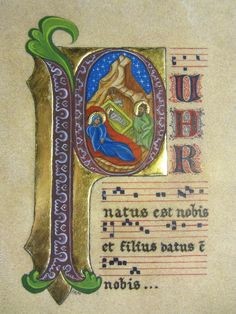 PUER
natus est nobis
et filius datus ē
nobis...